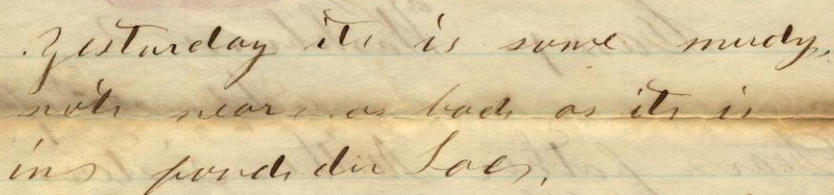 Yesturday it is some mudy,
not near as bad as it is
in fond du Lac,